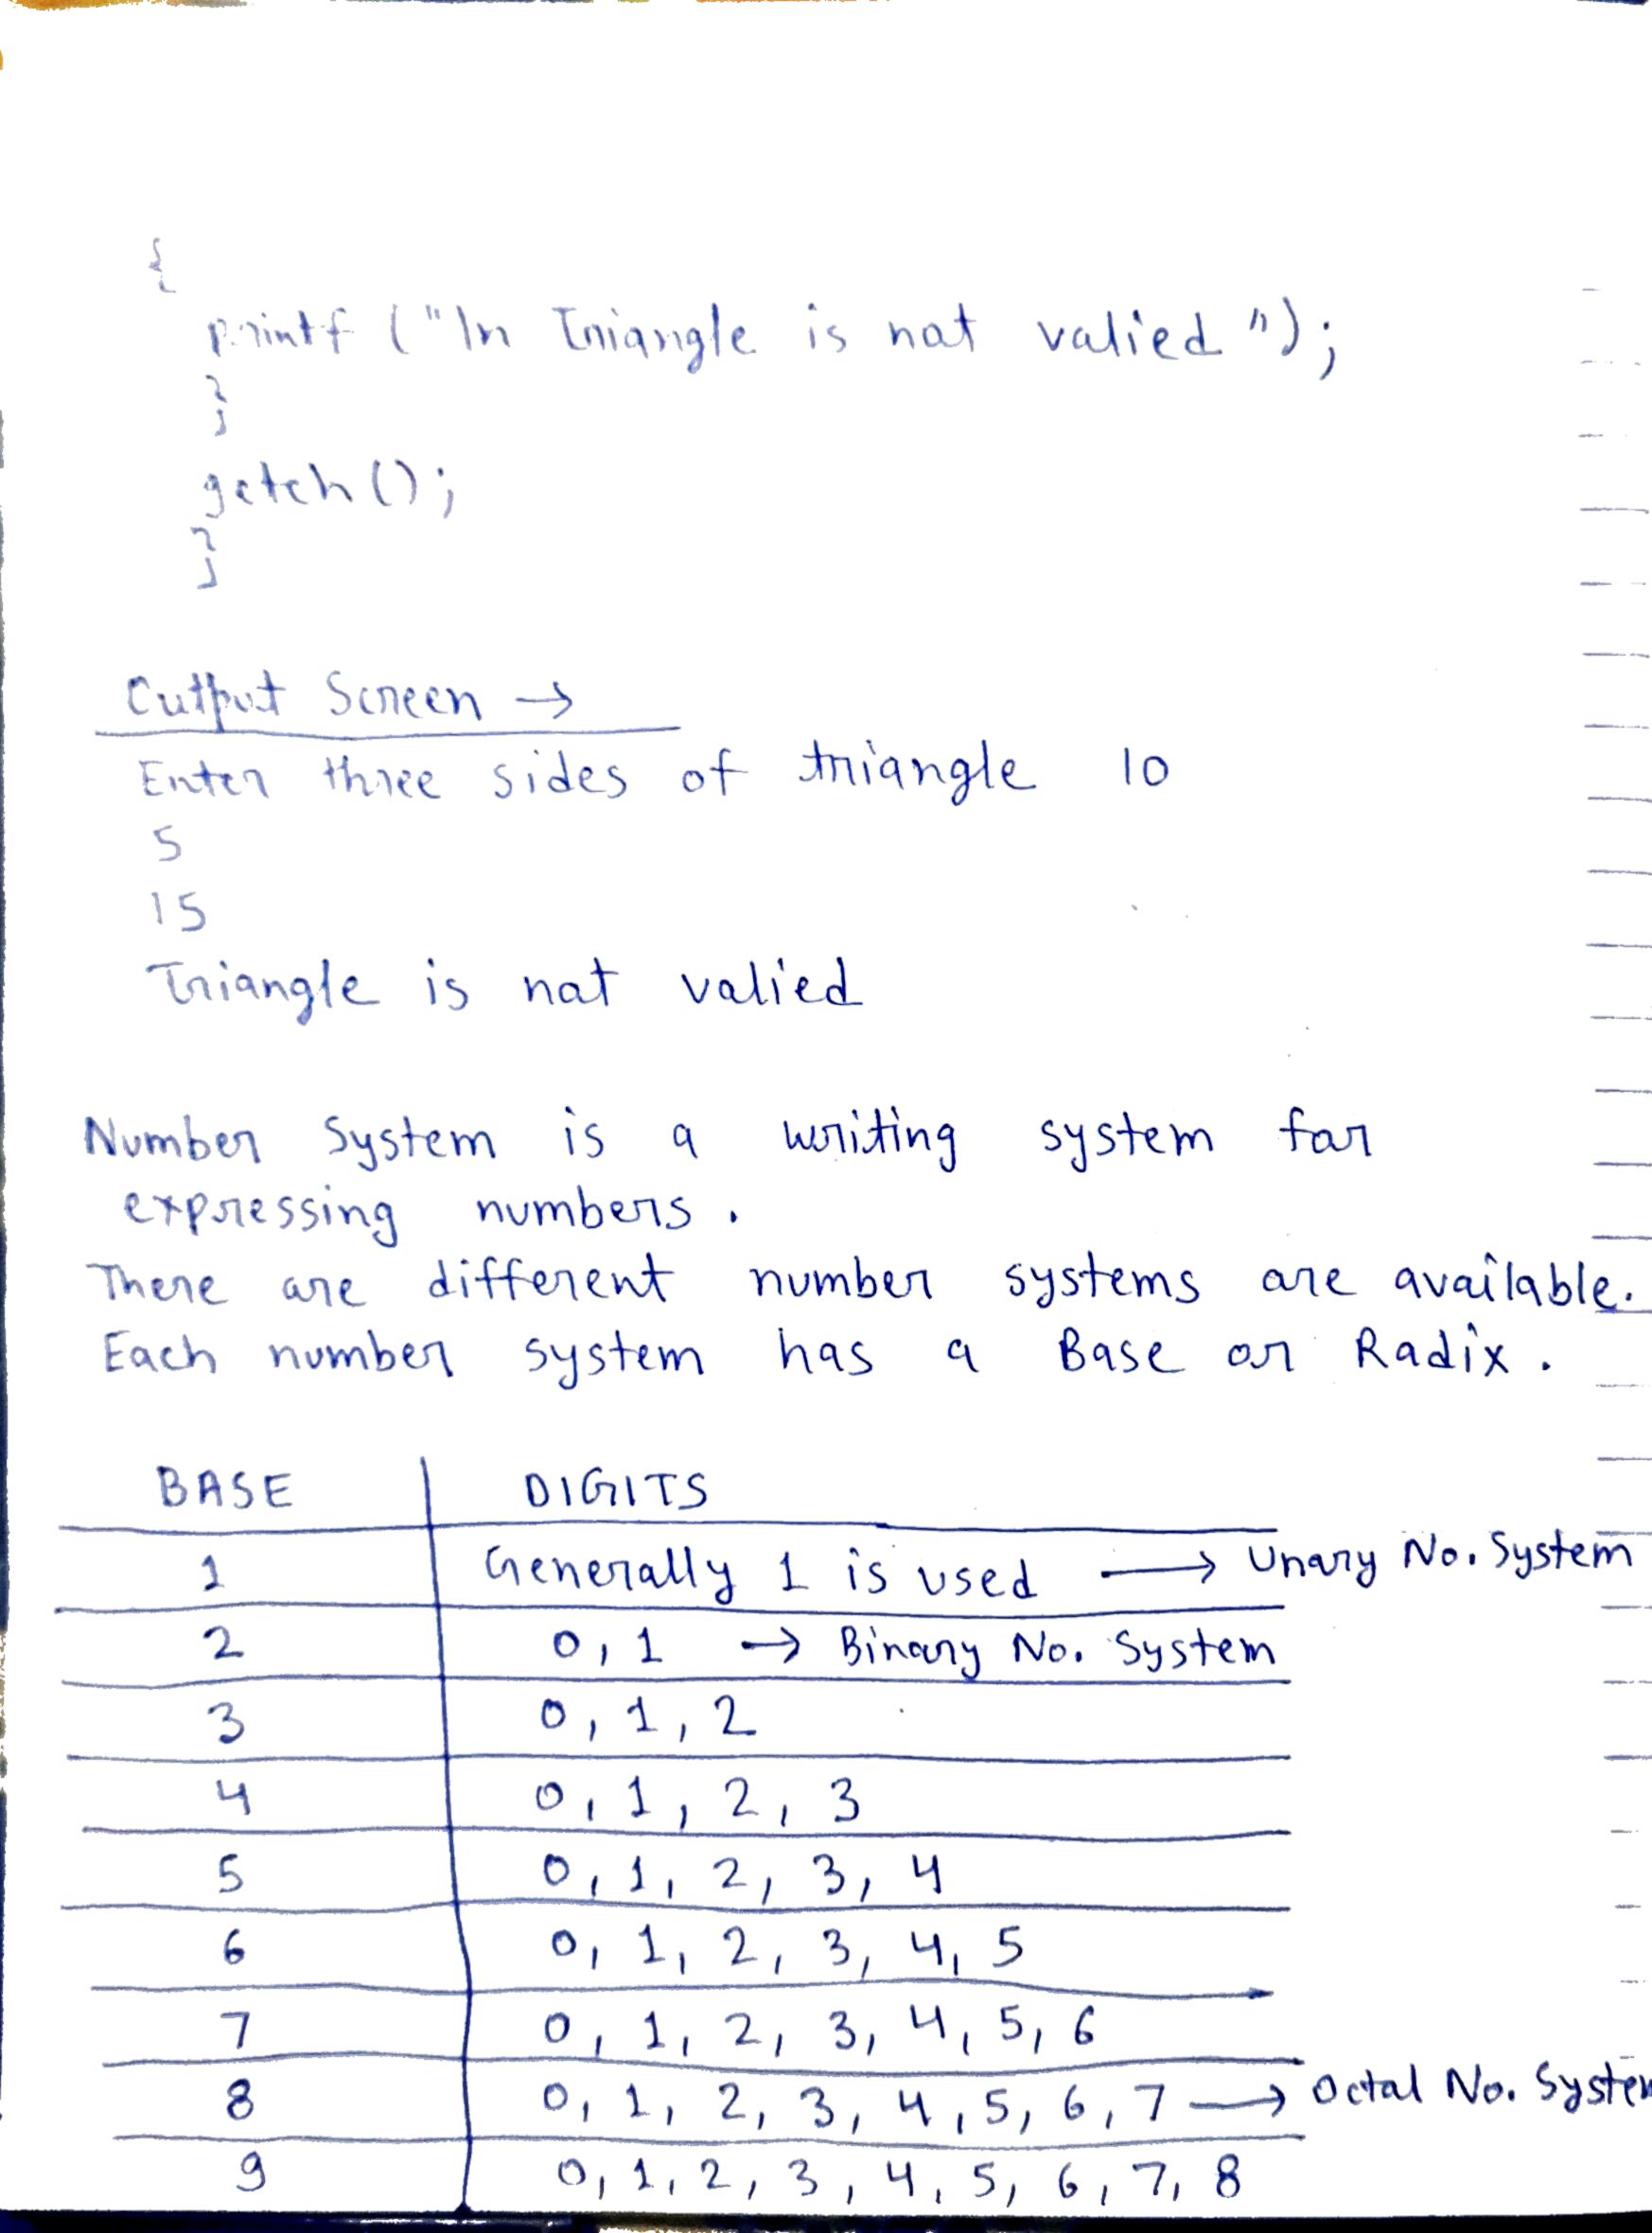 {
printf ("\n Triangle is not valied ");
}
getch ();
}
Output Screen →
Enter three sides of triangle 10
5
15
Triangle is not valied
Number System is a writing system for
expressing numbers .
There are different number systems are available.
Each number system has a Base or Radix .
BASE DIGITS
1 Generally 1 is used → Unary No. System
2 0, 1 → Binary No. System
3 0, 1, 2
4 0, 1, 2, 3
5 0, 1, 2, 3, 4
6 0, 1, 2, 3, 4, 5
7 0, 1, 2, 3, 4, 5, 6
8 0, 1, 2, 3, 4, 5, 6, 7 → Octal No. System
9 0, 1, 2, 3, 4, 5, 6, 7, 8